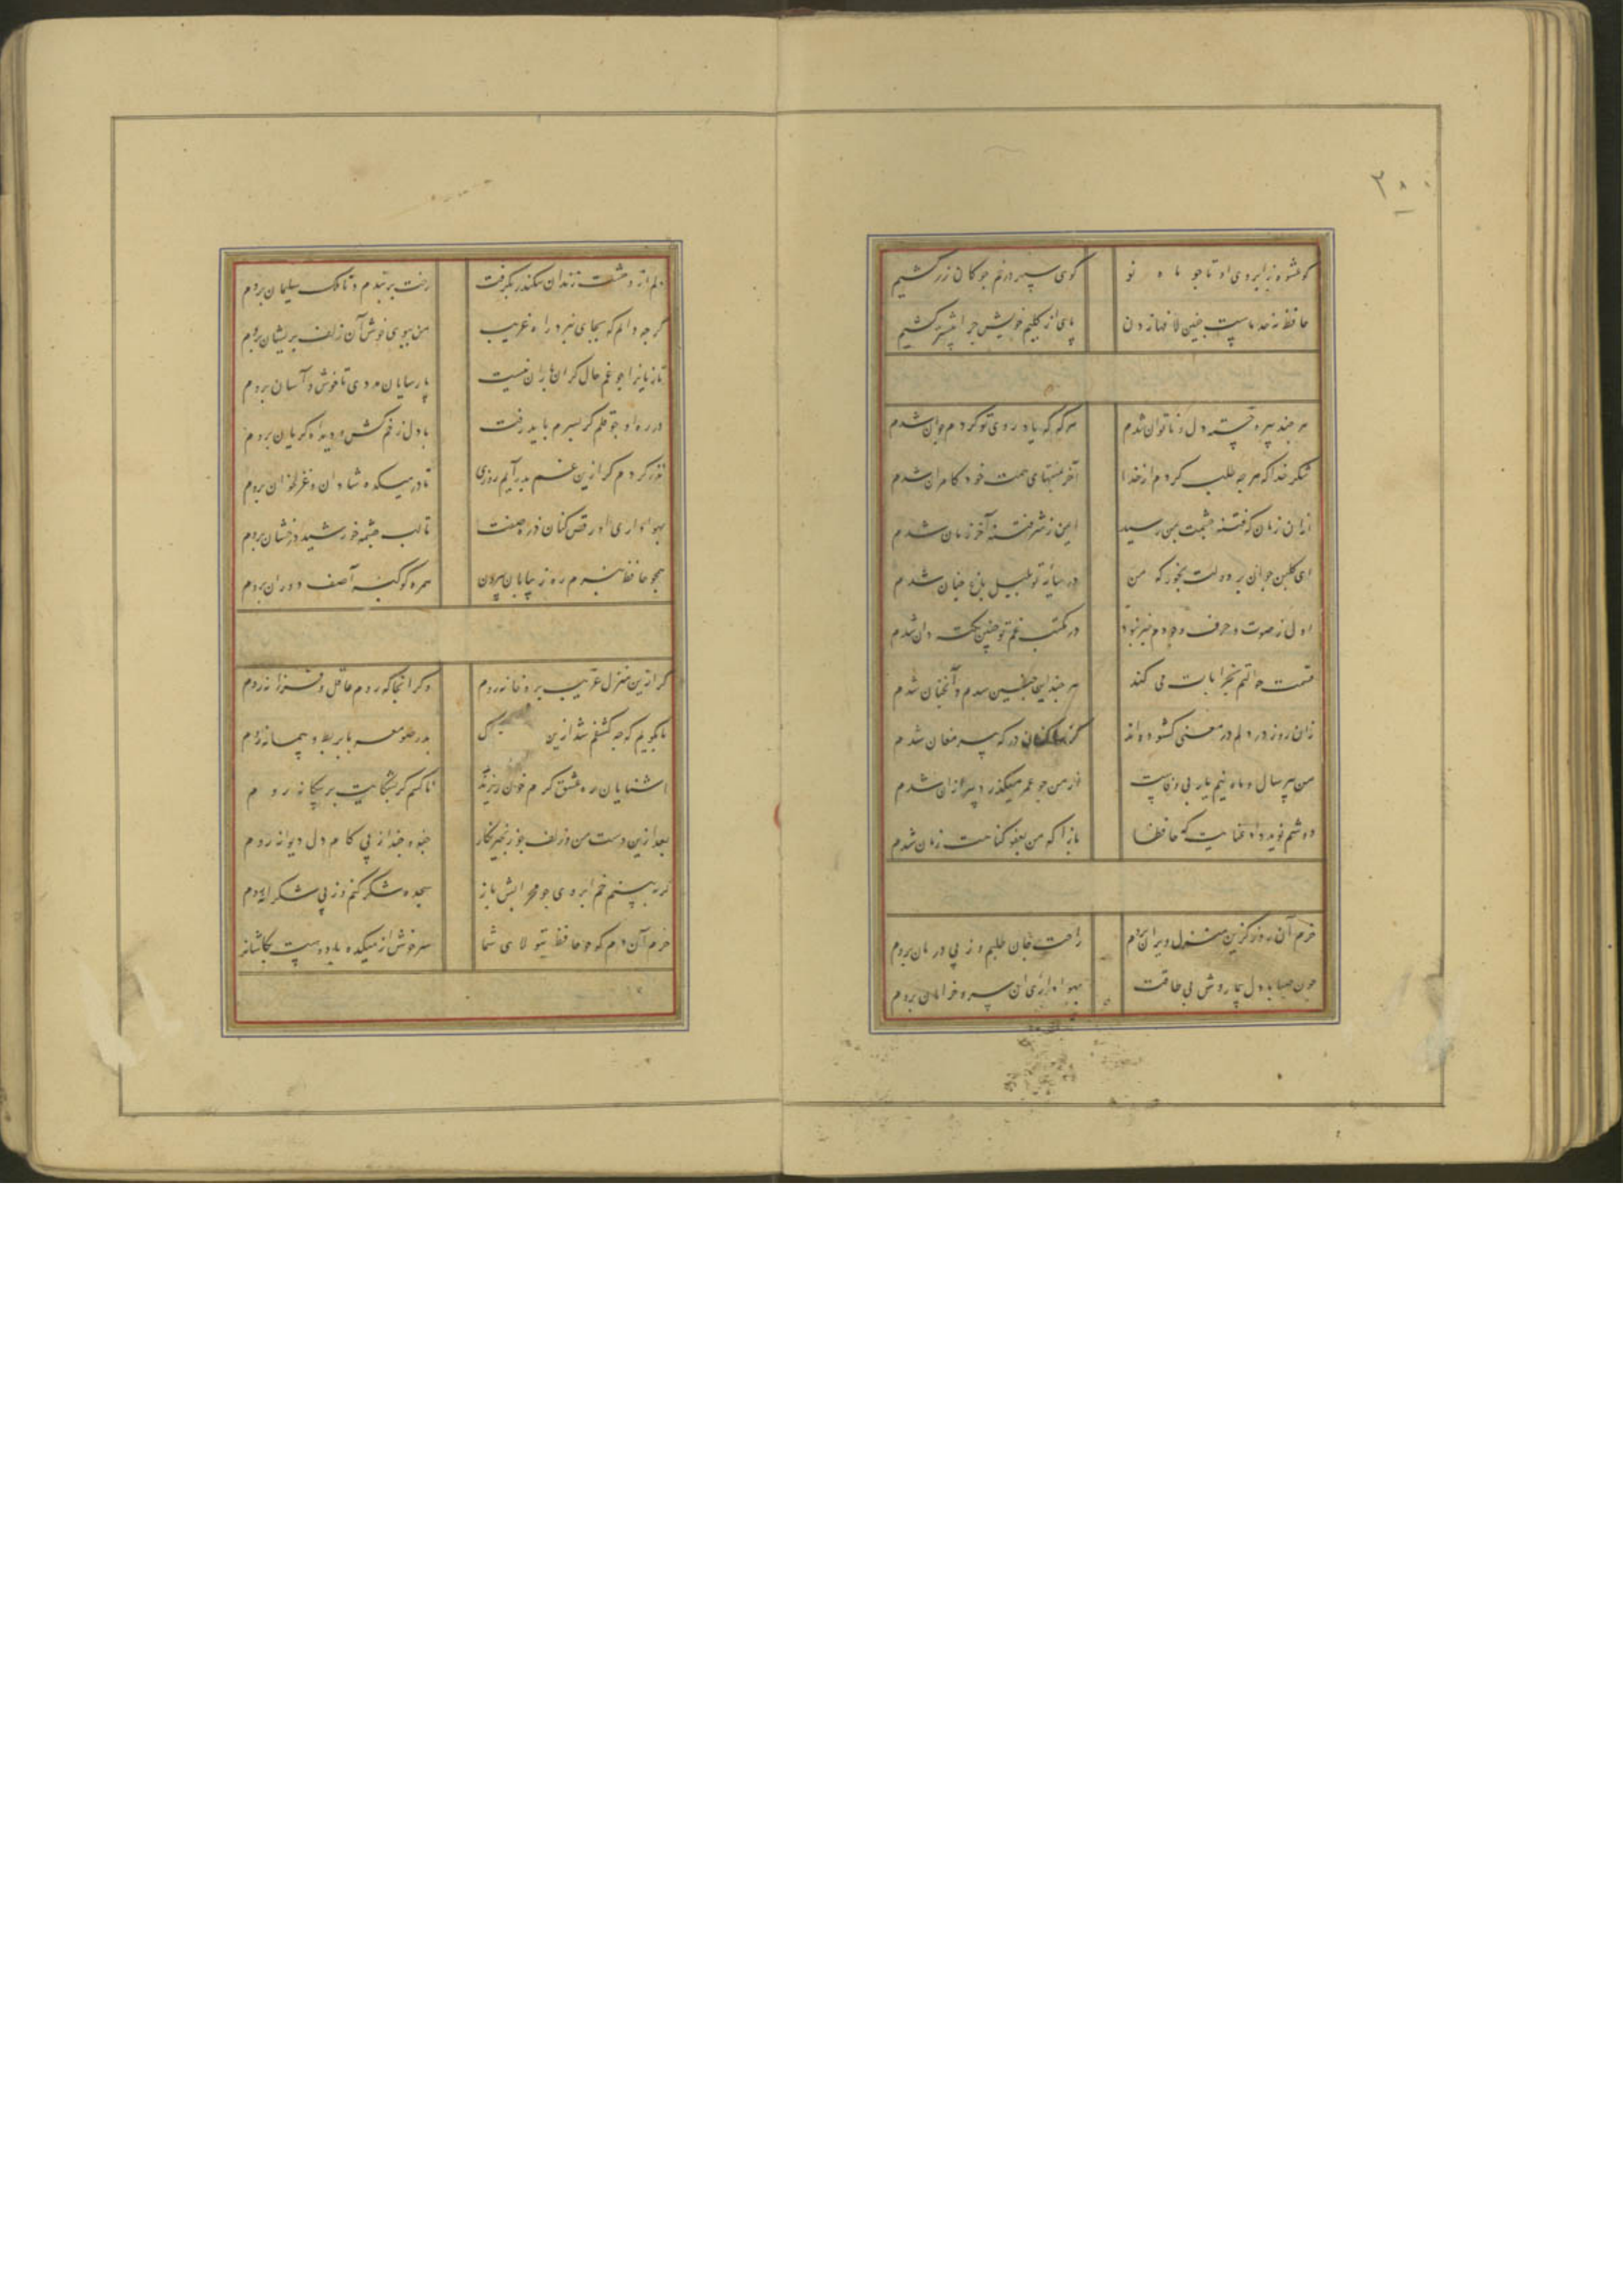 ۳۸۰
کو عشوه ز ابروی او تا چو ماه نو گوی سپهر در خم چوکان زر کشیم
حافظ نه حد ماست چنین لافها زدن پای از کلیم خویش چرا پیشتر کشیم
هر چند پیر و خسته دل و ناتوان شدم هر که که یاد روی تو کردم جوان شدم
شکر خدا که هر چه طلب کردم از خدا آخر بمنتهای همت خود کامران شدم
از آن زمان که فتنه چشمت بمن رسید ایمن ز شر فتنه آخر زمان شدم
ای کلبن جوان بر دولت بخور که من در سایه تو بلبل باغ جنان شدم
اول ز صوت و حرف وجودم خبر نبود در مکتب غم تو چنین نکته دان شدم
قسمت حوالتم بخرابات می کند هر چند اینچنین شدم و آنچنان شدم
زان روز در دلم در معنی کشوده اند کز ساکنان درکه پیر مغان شدم
من پیر سال و ماه نیم یار بی وفاست از من چو عمر میکذرد پیر از آن شدم
دوشم نوید داد عنایت که حافظا باز آ که من بعفو کناهت زمان شدم
خرم آن روز کزین منزل ویران بروم راحت جان طلبم وز پی درمان بروم
چون صبا با دل بیمار و تن بی طاقت بهواداری آن سرو خرامان بروم
دلم از وحشت زندان سکندر بکرفت رخت بربندم و تا ملک سلیمان بروم
کر چه دانم که بجای نبرد راه غریب من ببوی خوش آن زلف پریشان بروم
تازیانرا چو غم حال کران باران نیست پارسایان مددی تا خوش و آسان بروم
در ره او چو قلم کر بسرم باید رفت با دل زخم کش و دیده کریان بروم
نذر کردم کر ازین غم بدر آیم روزی تا در میکده شادان و غزلخوان بروم
بهواداری او رقص کنان ذره صفت تا لب چشمه خورشید درخشان بروم
همچو حافظ نبرم ره ز بیابان بیرون همره کوکبه آصف دوران بروم
کر ازین منزل غریب بروم خانه روم دکر آنجا که روم عاقل و فرزانه روم
تا بگویم که چه کشفم شد ازین بدر صومعه با بربط و پیمانه روم
آشنایان ره عشق کرم خون ریزند ناکسم کر بشکایت بر بیکانه روم
بعد ازین دست من و زلف چو زنجیر نکار چند و چند از پی کام دل دیوانه روم
کر ببینم خم ابروی چو محرابش باز سجده شکر کنم وز پی شکرانه روم
خرم آن دم که چو حافظ بتولای شما سرخوش از میکده با دوست بکاشانه